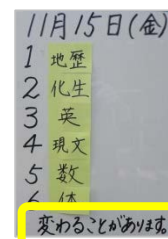 11月15日(金)
1 地歴
2 化生
3 英
4 現文
5 数
6 体
変わることがあります